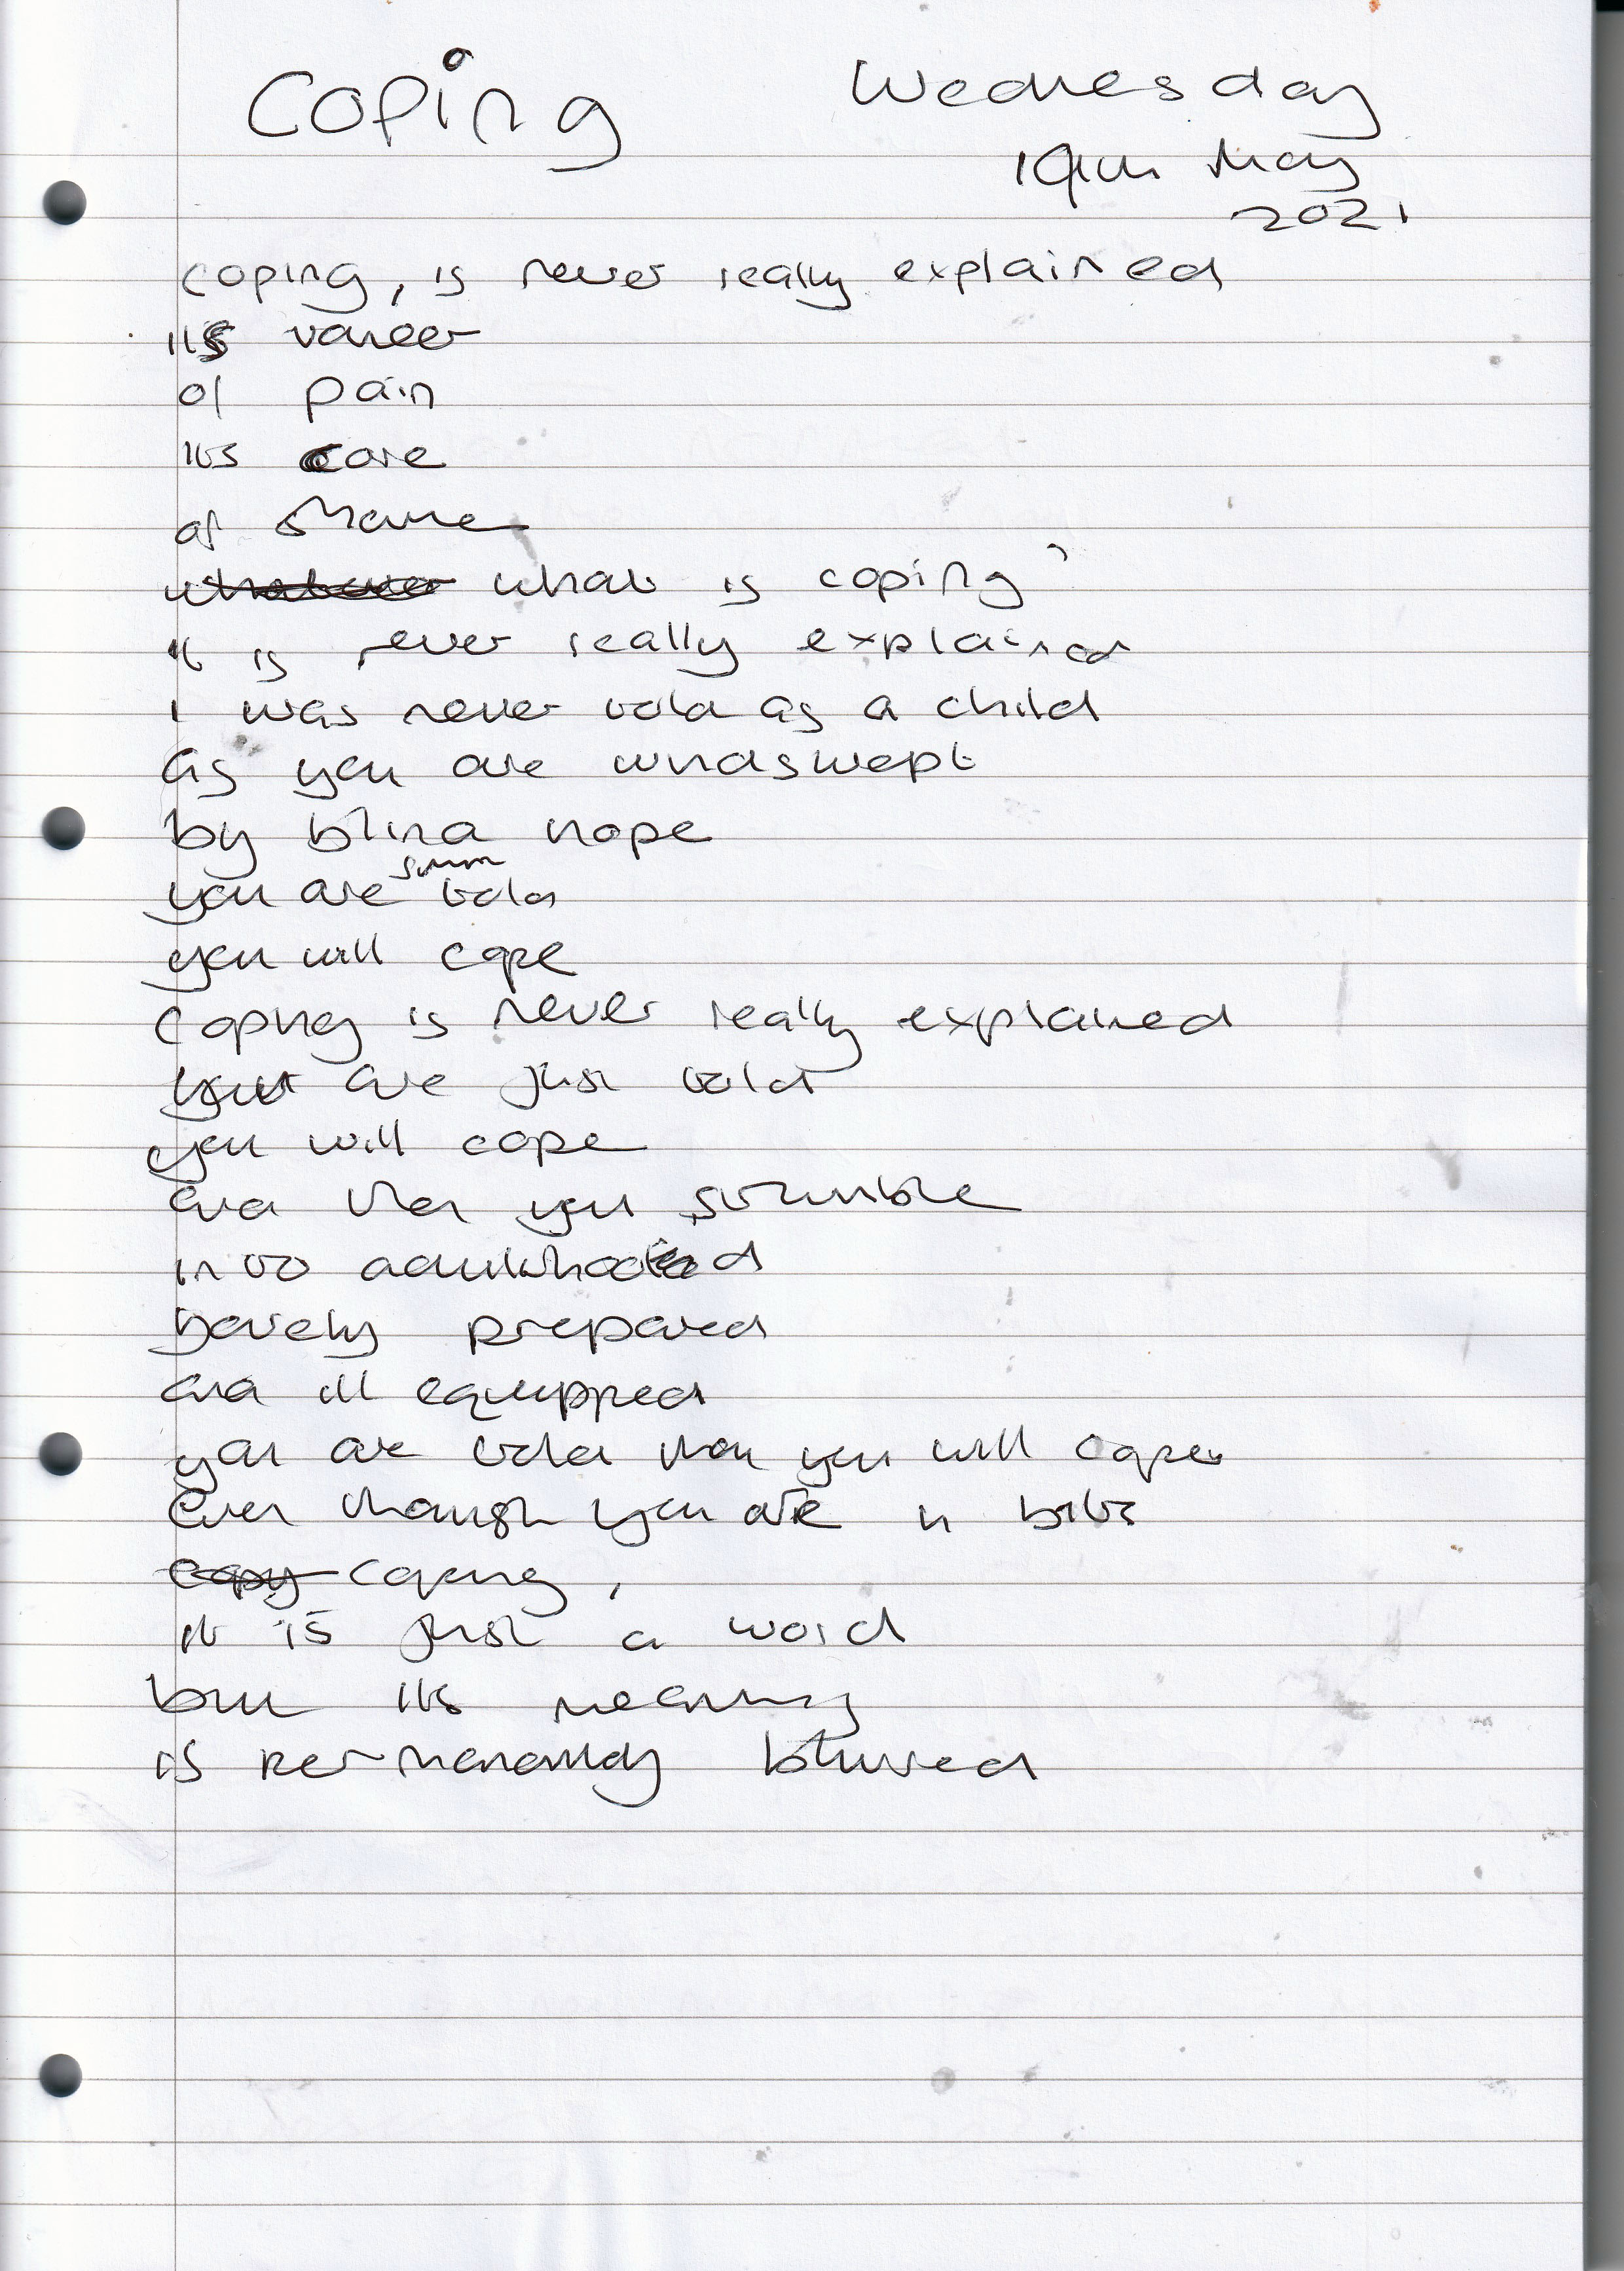 Coping
Wednesday
19th May
2021
coping, is never really explained
its vaneer
of pain
its core
of shame
what is coping?
it is never really explained
I was never told as a child
as you are windswept
by blind hope
you are told
you will cope
Coping is never really explained
you are just told
you will cope
and then you stumble
into adulthood
barely prepared
and ill equipped
you are told then you will cope
Even though you are in bits
Coping,
it is just a word
but its meaning
is permanently blurred